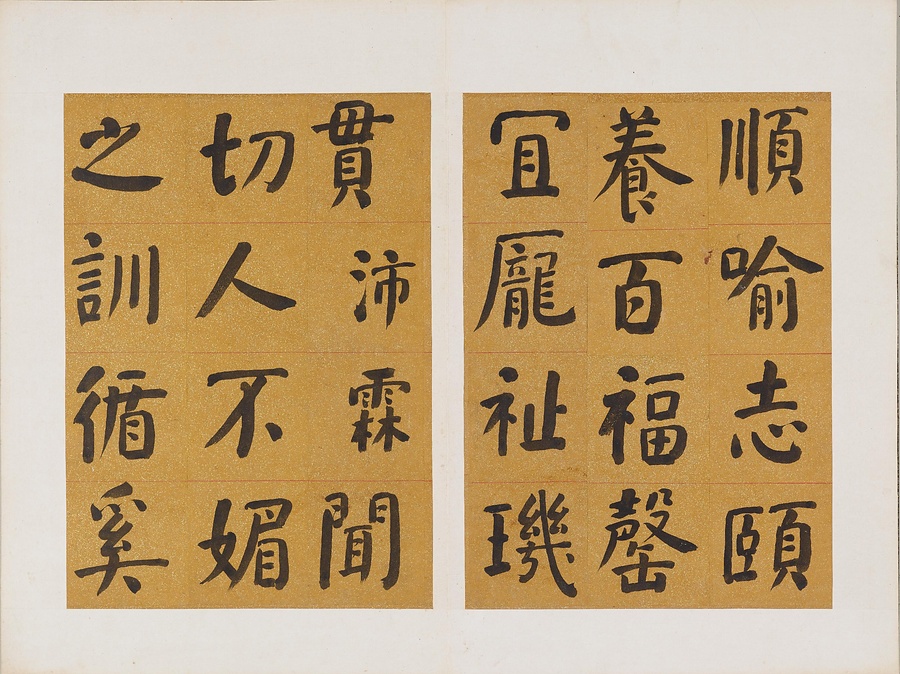 順喻志頤
養百福罄
冝龎祉璣
貫沛霖聞
切人不媚
之訓循奚